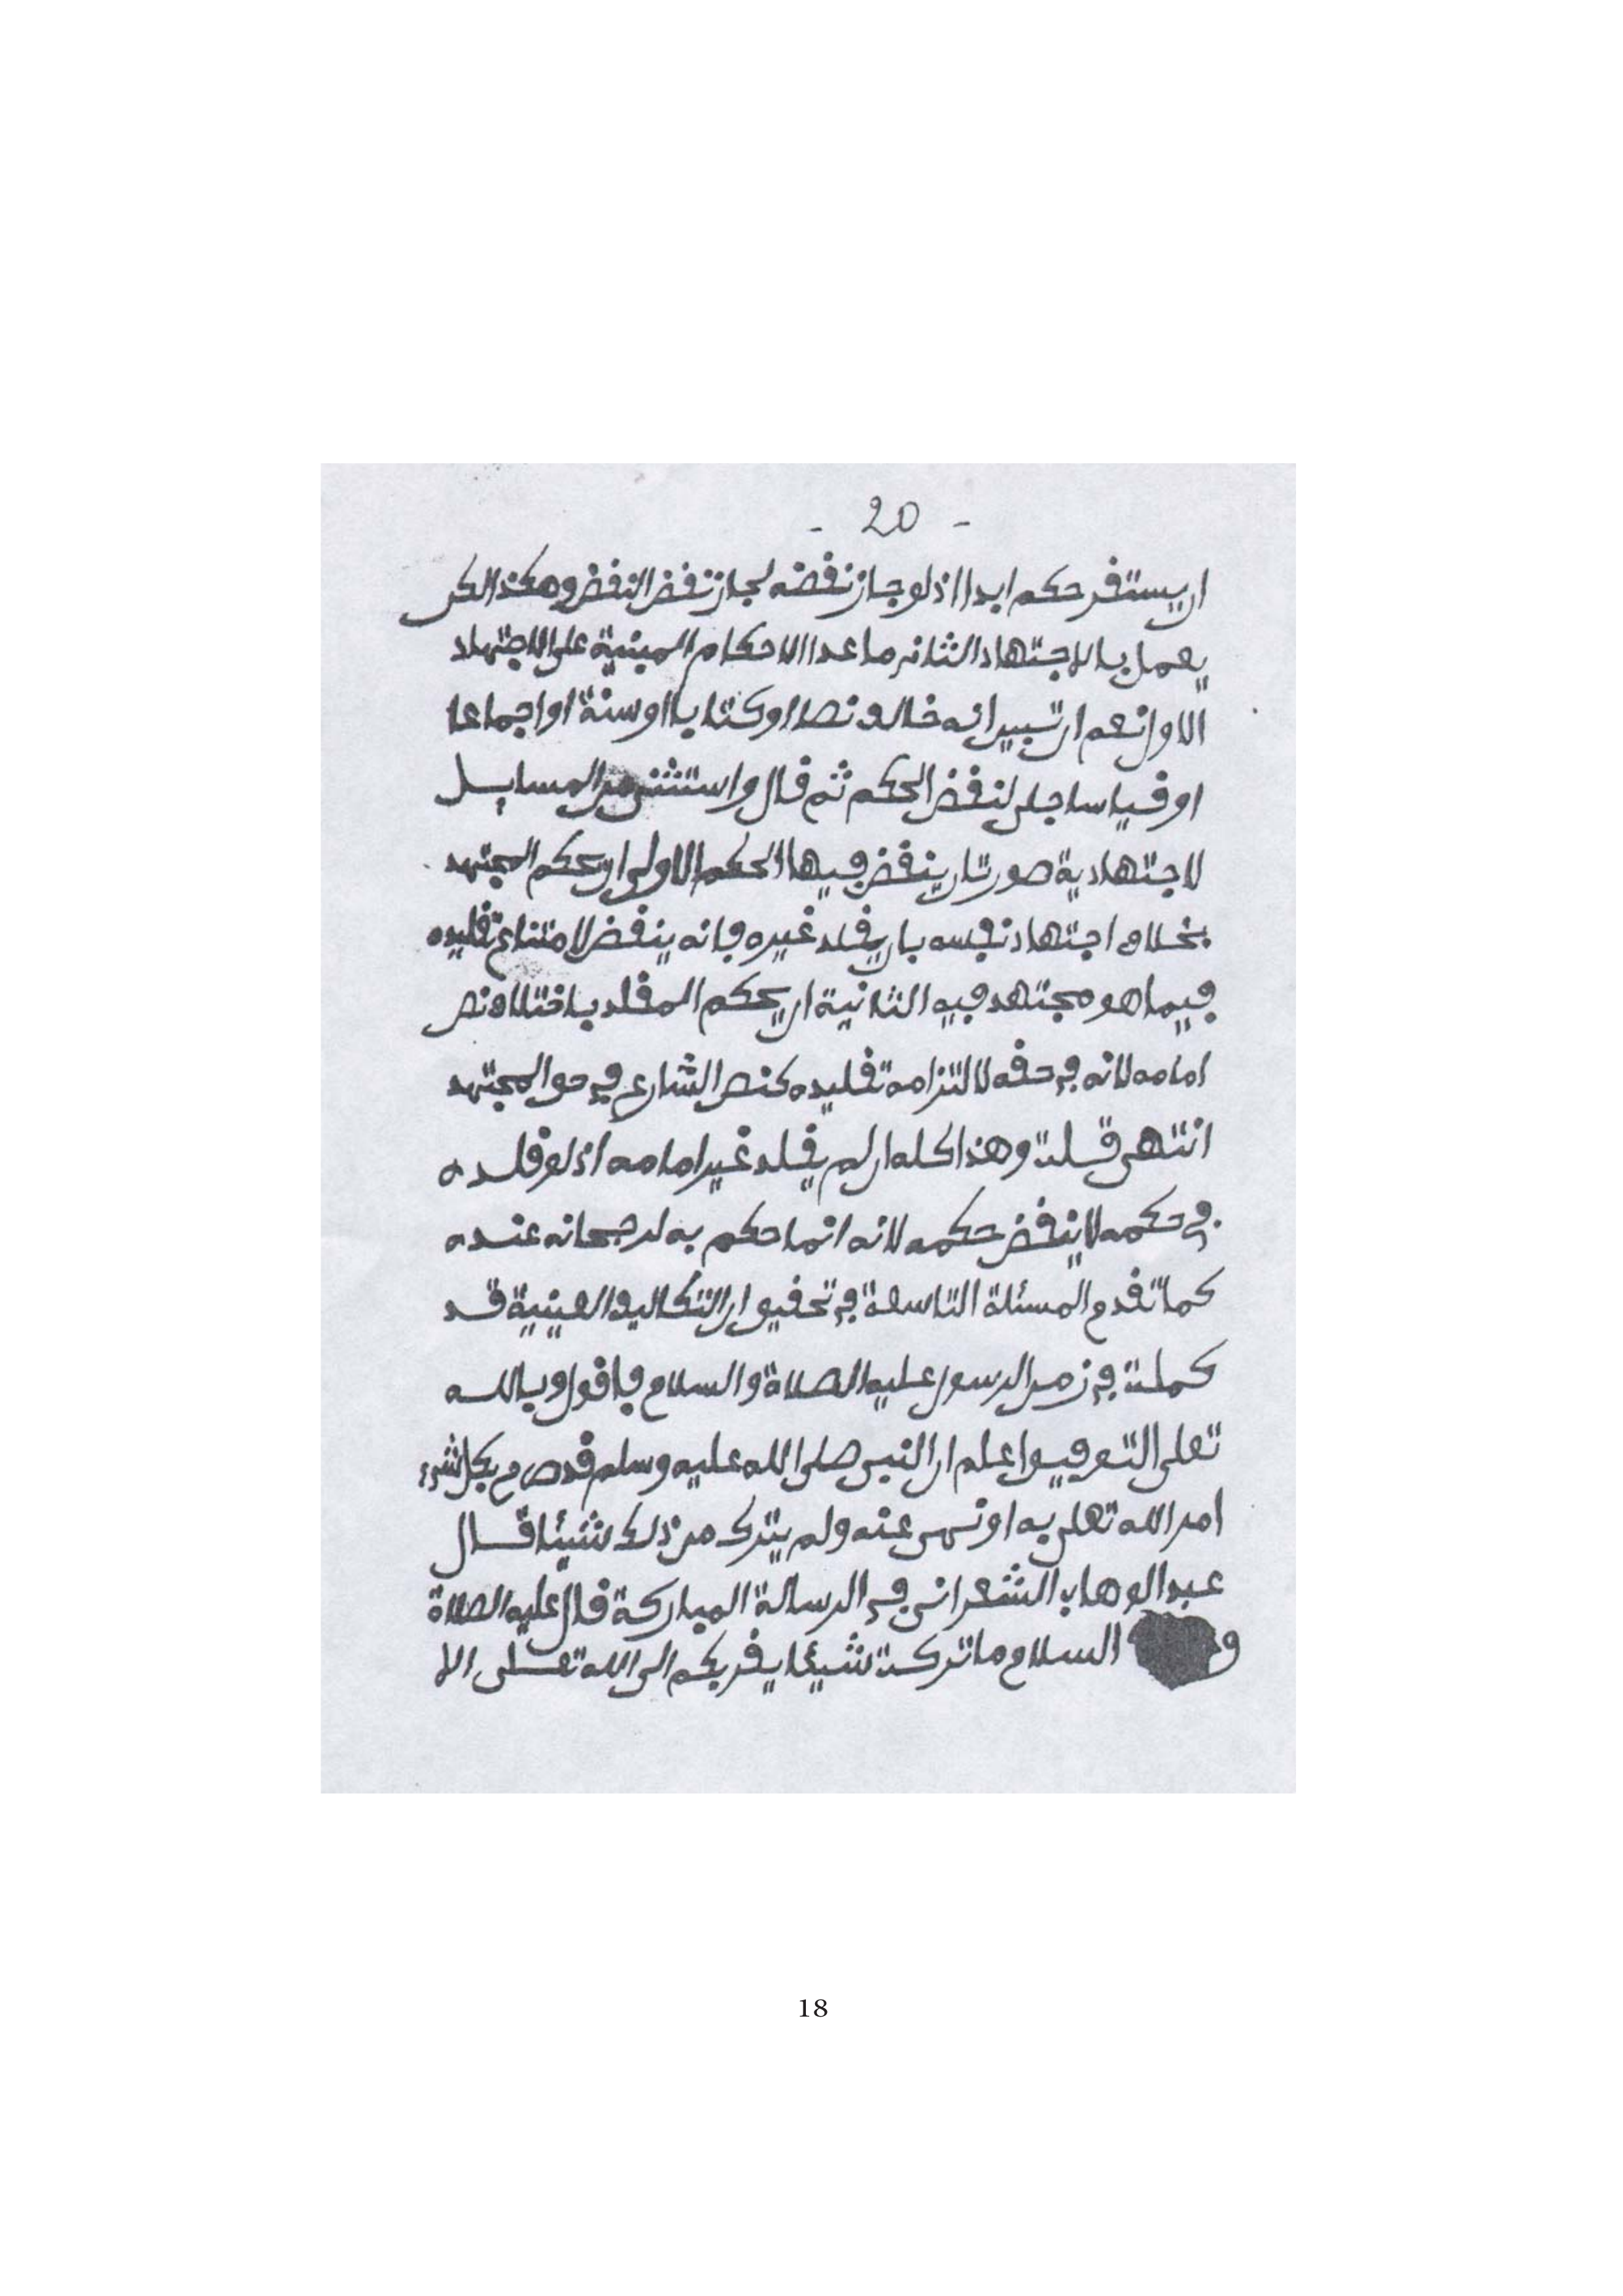 - 20 -
ان يستقر حكم ابدا اذ لو جاز نقضه لجاز نقض النقض وهكذا لكن
يعمل بالاجتهاد الثاني ما عدا الاحكام المبنية على الاجتهاد
الاول نعم ان تبين انه خالف نصا او كتابا او سنة او اجماعا
او قياسا جلي لنقض الحكم ثم قال واستثنى من المسايل
لاجتهادية صورتان ينقض فيها الحكم الاولى ان يحكم المجتهد
بخلاف اجتهاد نفسه بان يقلد غيره فانه ينقض لامتناع تقليده
فيما هو مجتهد فيه الثانية ان يحكم المقلد باختلاف نص
امامه لانه في حقه لالتزامه تقليده كنص الشارع في حق المجتهد
انتهى قلت وهذا كله ان لم يقلد غير امامه اذ لو قلده
في حكمه لا ينقض حكمه لانه انما حكم به لرجحانه عنده
كما تقدم المسئلة التاسعة في تحقيق ان التكاليف العينية قد
كملت في زمن الرسول عليه الصلاة والسلام فاقول وبالله
تعلى التوفيق اعلم ان النبي صلى الله عليه وسلم قد صرح بكل شيء
امر الله تعلى به او نهى عنه ولم يترك من ذلك شيئا قال
عبد الوهاب الشعراني في الرسالة المباركة قال عليه الصلاة
و السلام ما تركت شيئا يقربكم الى الله تعلى الا
18